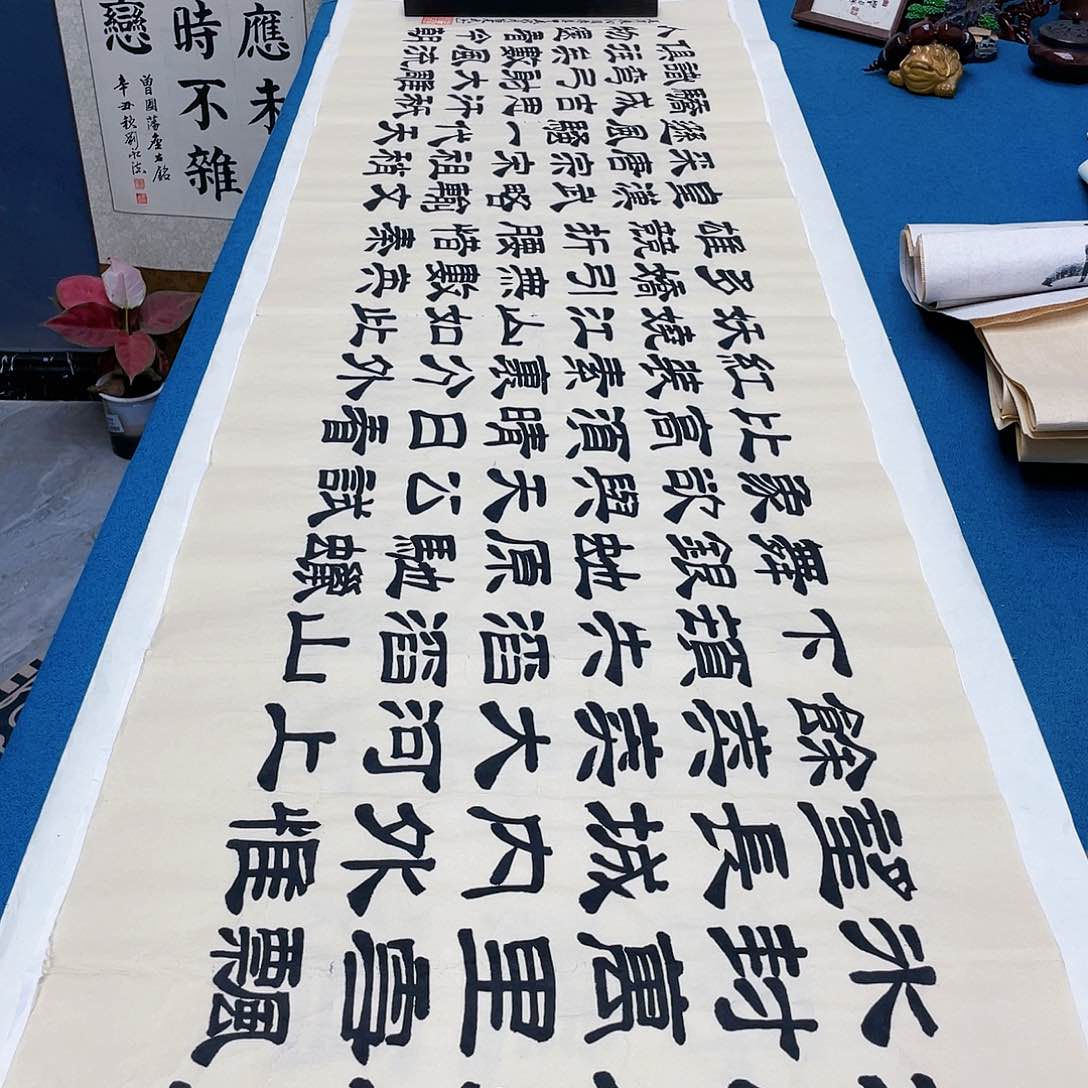 氷封萬里雪飄
望長城內外惟
餘莽莽大河上
下頓失滔滔山
舞銀蛇原馳蠟
象欲與天公試
比高須晴日看
紅裝素裹分外
妖嬈江山如此
多嬌引無數英
雄競折腰惜秦
皇漢武略輸文
采唐宗宋祖稍
遜風騷一代天
驕成吉思汗秖
識彎弓射大雕
俱往矣數風流
人物還看今朝
應未
時不雜
戀
曾國藩座右銘
辛丑秋劉